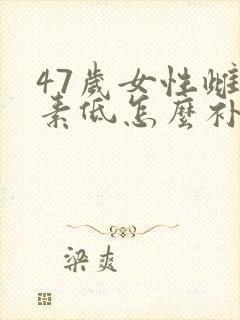 47歲女性雌
素低怎麼补
梁爽